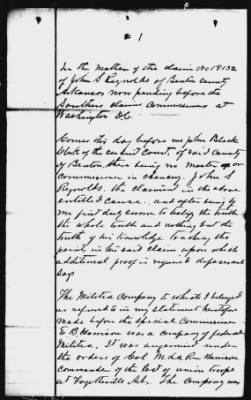 # 1
In the matter of the claim No 18132
of John S Reynolds of Benton County
Arkansas now pending before the
Southern claims Commissioners at
Washington D.C.
Comes this day before me John Black
Clerk of the circuit Court of said County
of Benton, there being no Master or
Commissioner in chancery. John S
Reynolds. the claimant in the above
entitled cause. and after being by
me first duly sworn to testify the truth
the whole truth and nothing but the
truth of his knowledge touching the
points in his said claim upon which
additional proof is required deposes and
says
The Militia Company to which I belonged
as refered to in my statement heretofore
made before the Special Commissioner
E B Harrison was a company of federal
Militia. It was organized under
the orders of Col M. La Rue Harrison
Commander of the Post of union troops
at Fayetteville Ark. The Company was